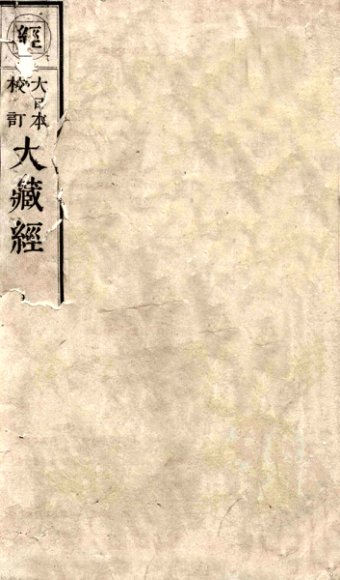 經
大日本
校訂
大藏經